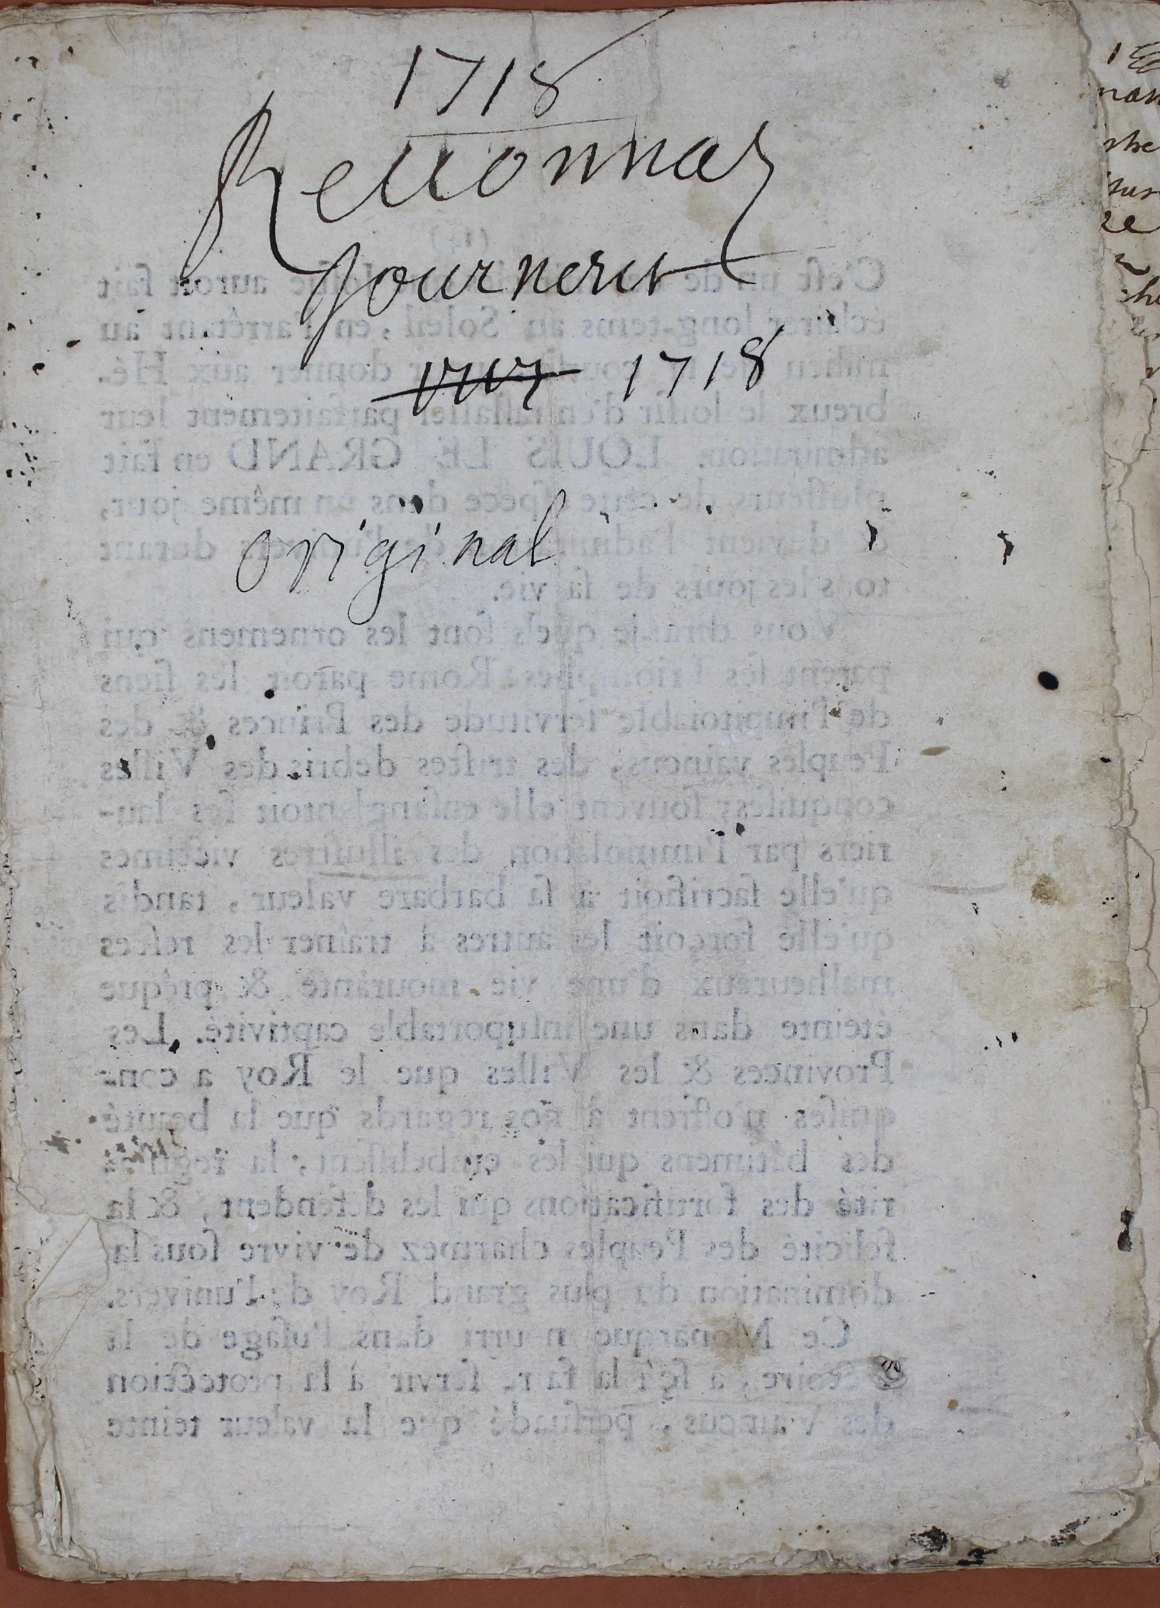 1718
Rettonnay
Journeret
1717 1718
original
C'eſt un de auroit fait
éclairer long-tems au Soleil, en l'arrétant au
milieu de donner aux Hé-
breux le loiſir d'en raſſaſier parfaitement leur
admiration. LOUIS LE GRAND en fait
pluſieurs de cette eſpece dans un même jour,
durant
tous les jours de ſa vie.
Vous dirai-je quels ſont les ornemens qui
parent ſes Triomphes. Rome paroit les ſiens
de l'impitoiable ſervitude des Princes & des
Peuples vaincus, des triſtes debris des Villes
conquiſes; ſouvent elle enſanglantoit ſes lau-
riers par l'immolation des illuſtres victimes
qu'elle ſacrifioit à ſa barbare valeur, tandis
qu'elle forçoit les autres à traîner les reſtes
malheureux d'une vie mourante & préque
éteinte dans une inſuportable captivité. Les
Provinces & les Villes que le Roy a con-
quiſes n'offrent à nos regards que la beauté
des bâtimens qui les embelliſſent, la regula-
rité des fortifications qui les défendent, & la
felicité des Peuples charmez de vivre ſous la
domination du plus grand Roy de l'univers.
Ce Monarque nourri dans l'uſage de la
Victoire, a ſçû la faire ſervir à la protection
des vaincus, perſuadé que la valeur teinte